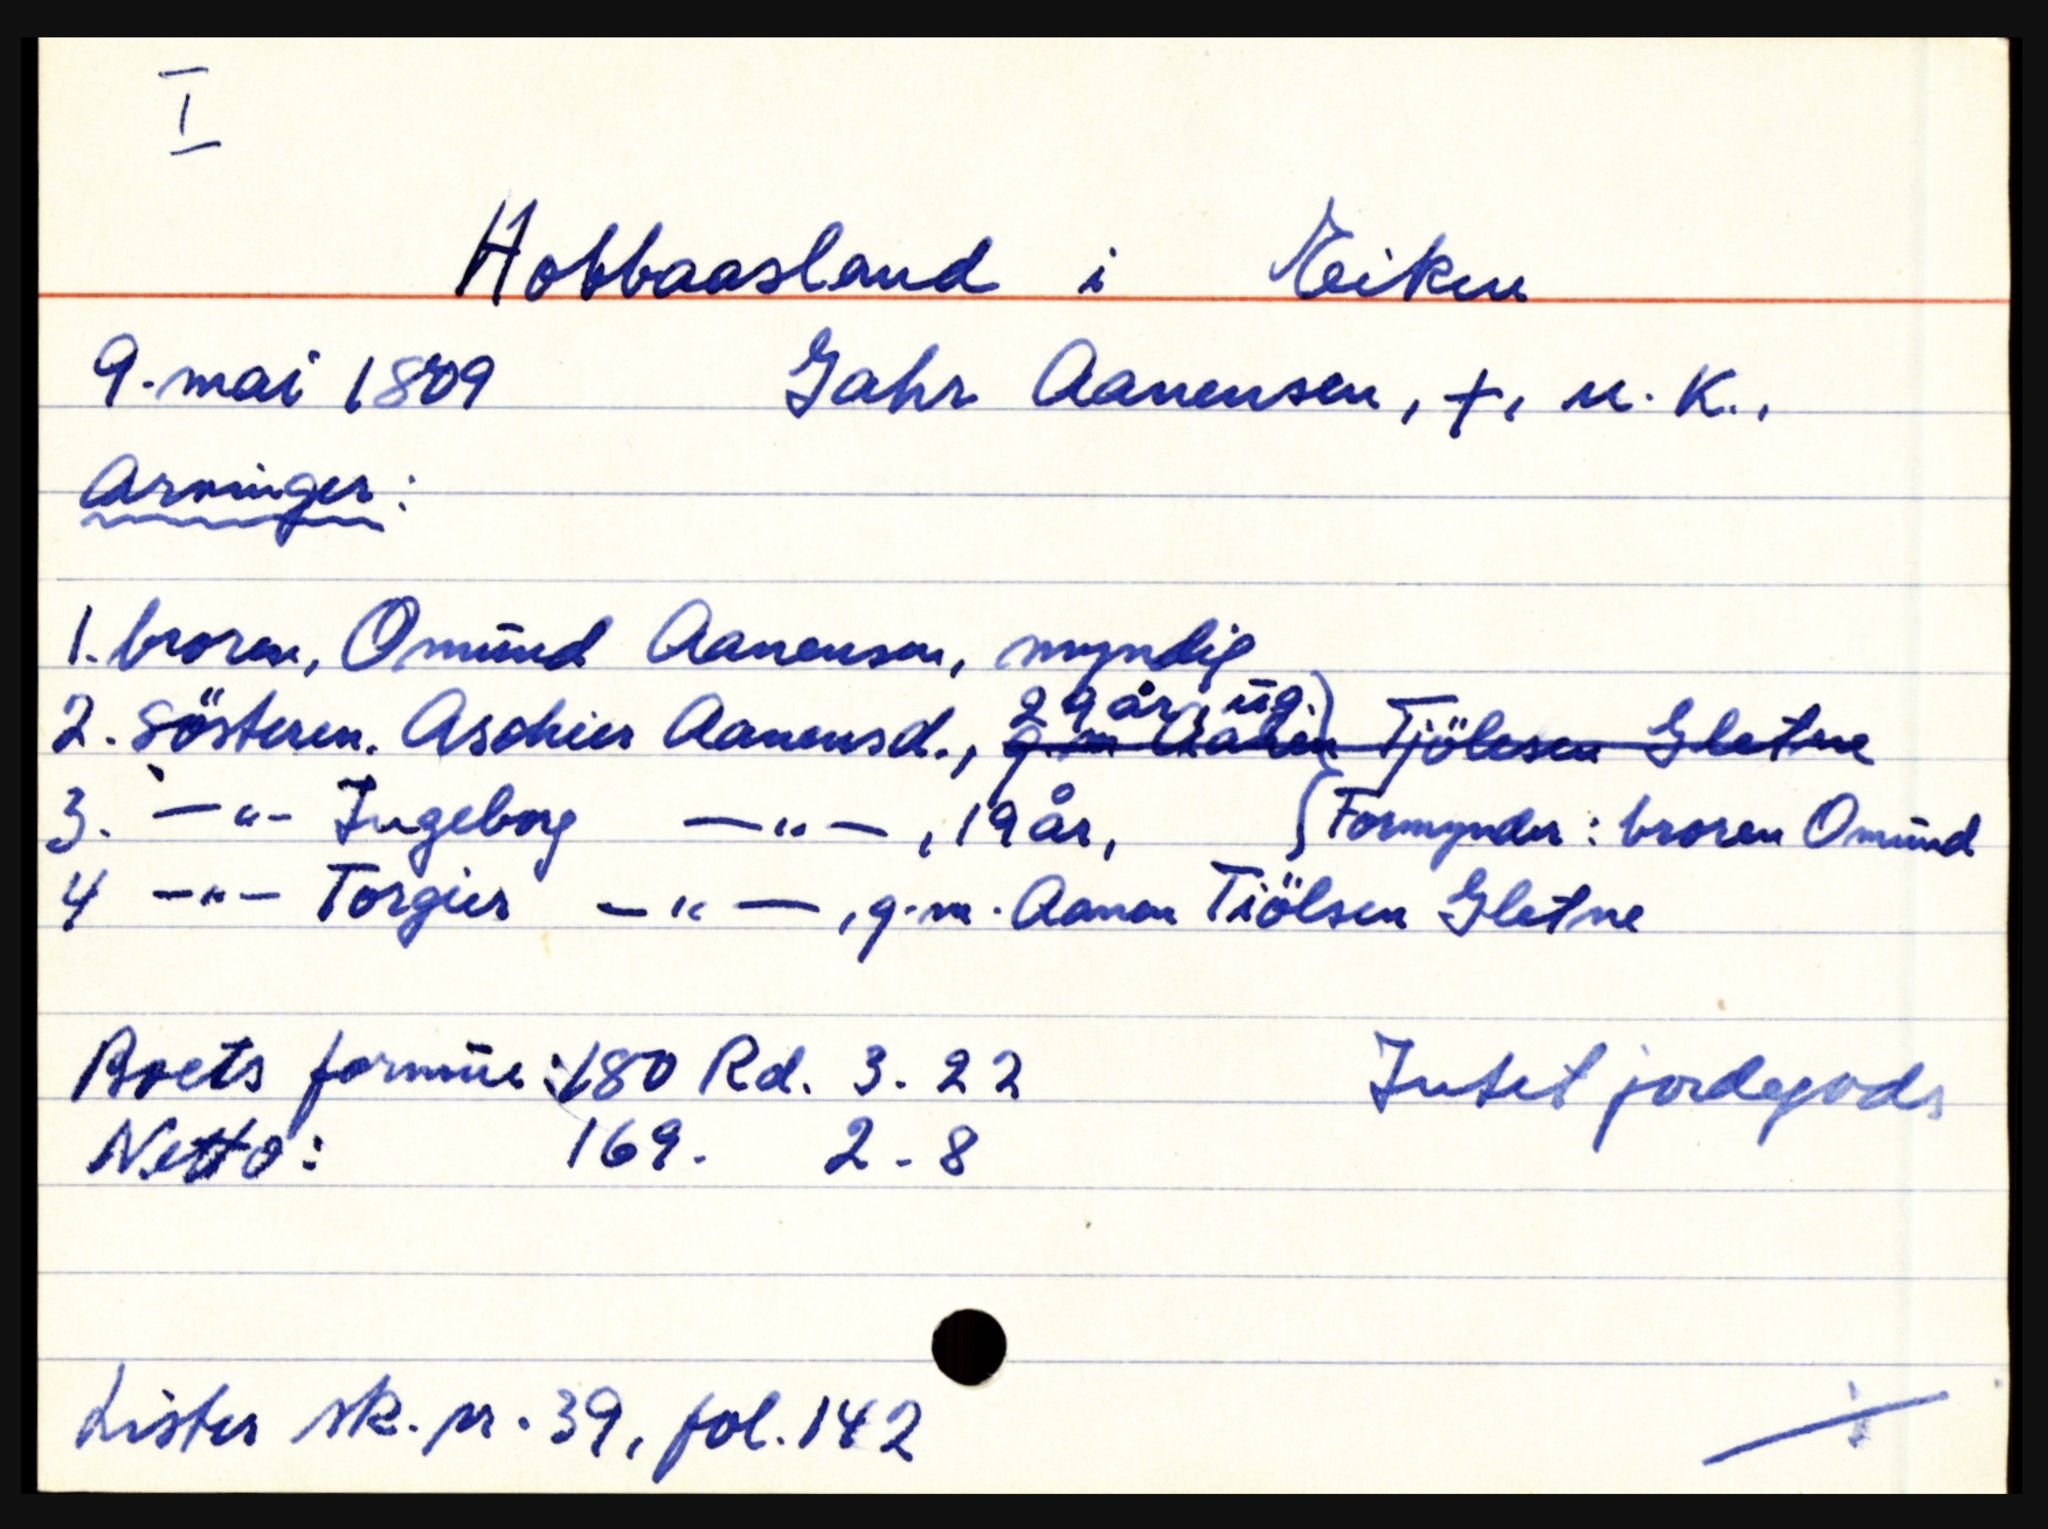 I
Hobbaasland i Eiken
9. mai 1809 Gahr Aanensen, +, u. K.,
Arvinger:
1. broren, Omund Aanensen, myndig
29 år, ug.
2. Sösteren. Aschier Aanensd., g.m Aanen Tjölesen Gletne
3. —"— Ingeborg —"—, 19 år, Formynder: broren Omund
4 —"— Torgier —"—, g.m. Aanen Tiölsen Gletne
Boets formue: 180 Rd. 3. 22 Intet jordegods
Netto: 169. 2 - 8
Lister sk. pr. 39, fol. 142